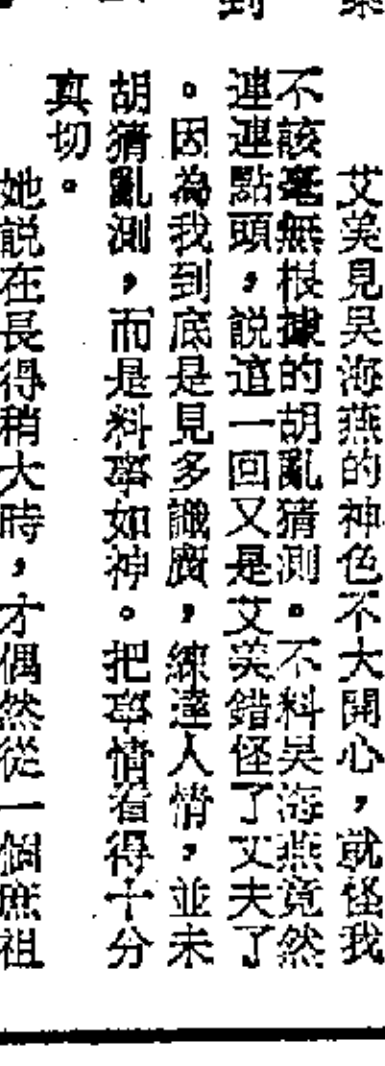 艾美見吳海燕的神色不大開心，就怪我
不該毫無根據的胡亂猜測。不料吳海燕竟然
連連點頭，說這一回又是艾美錯怪了丈夫了
。因為我到底是見多識廣，練達人情，並未
胡猜亂測，而是料事如神。把事情看得十分
真切。
她說在長得稍大時，才偶然從一個庶祖